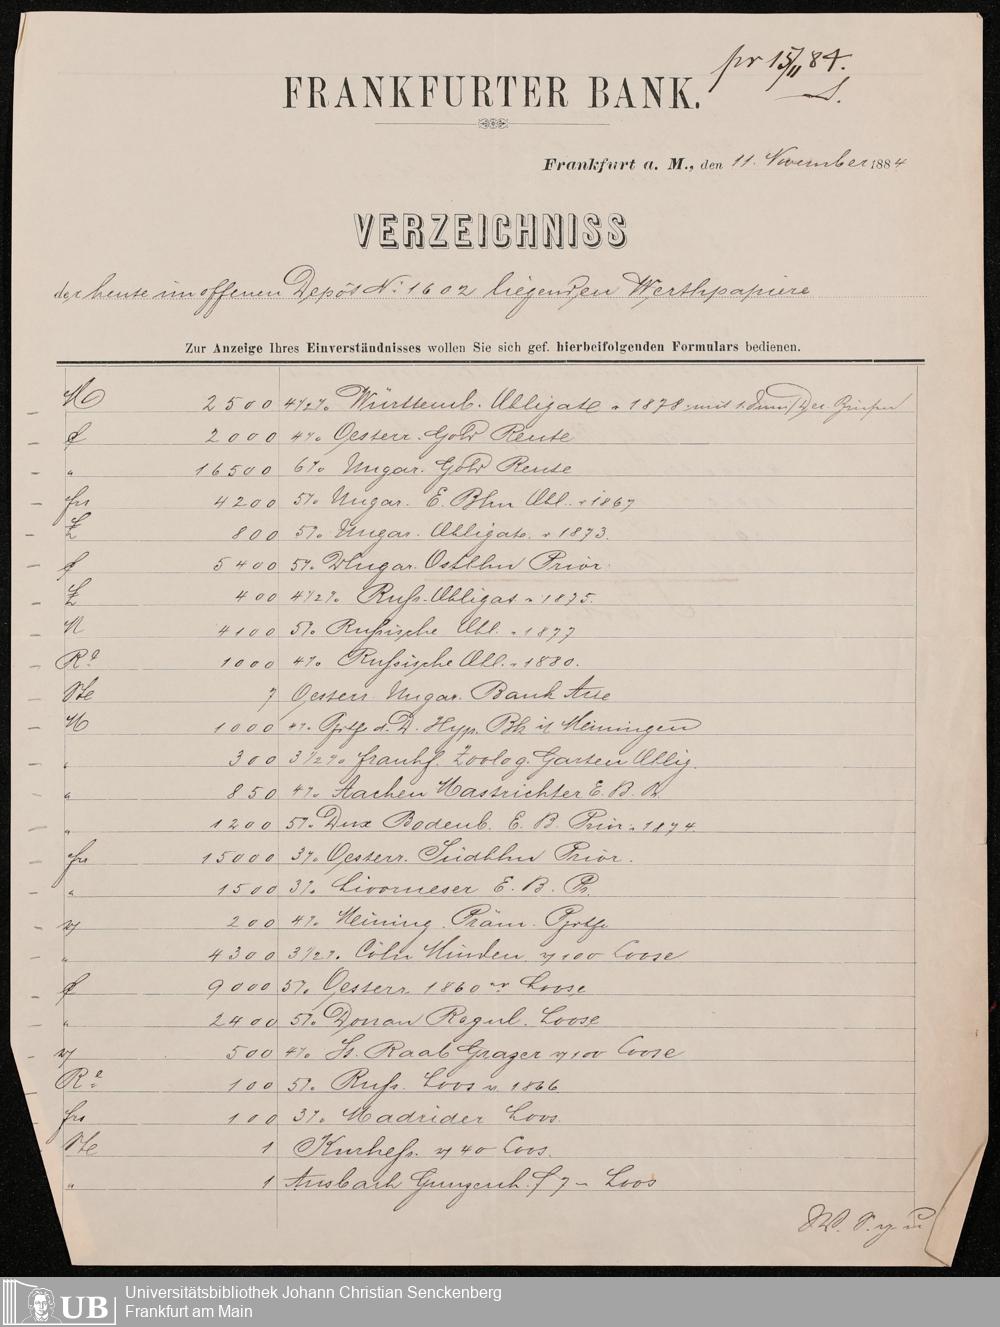 pr 15/11 84.
FRANKFURTER BANK.
Frankfurt a. M., den 11. November 1884
VERZEICHNISS
der heute im offenen Depôt No 1602 liegenden Werthpapiere
Zur Anzeige Ihres Einverständnisses wollen Sie sich gef. hierbeifolgenden Formulars bedienen.
M 2500 4 1/2 % Württemb. Obligat. v 1878 mit 1.
f 2000 4% Oesterr. Gold Rente
" 16500 6% Ungar. Gold Rente
frs 4200 5% Ungar. E. Bhn Obl. v 1867
£ 800 5% Ungar. Obligat. v 1873.
f 5400 5% Ungar. Ostbhn Prior.
£ 400 4 1/2 % Russ. Obligat. v 1875.
M 4100 5% Russische Obl. v 1877
Ro 1000 4% Russische Obl. v 1880.
Ste 7 Oesterr. Ungar. Bank Act
M 1000 4% Pfdbf d. D. Hyp. Bk i/ Meiningen
" 300 3 1/2 % Frankf. Zoolog. Garten Oblig.
" 850 4% Aachen Mastrichter E. B. P.
" 1200 5% Dux Bodenb. E. B. Prior. v 1874
frs 15000 3% Oesterr. Südbhn Prior.
" 1500 3% Livorneser E. B. Pr.
200 4% Meining. Präm. Pfdbf
" 4300 3 1/2 % Cöln Minden 100 Loose
f 9000 5% Oesterr. 1860er Loose
" 2400 5% Donau Regul. Loose
500 4% St. Raab Grazer 100 Loose
Ro 100 5% Russ. Loos v. 1866
frs 100 3% Madrider Loos.
Ste 1 Kurhess. 40 Loos.
" 1 Ansbach Gunzenh. f 7 - Loos